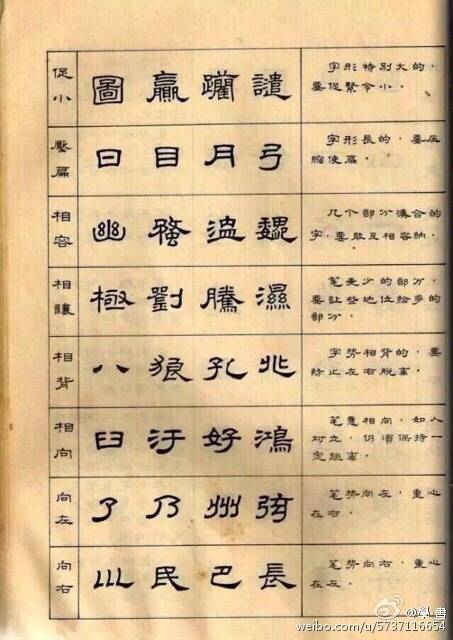 促小
圖 譴
字形特別大的，
要促緊令小。
壓扁
曰 目 月 弓
字形長的，要压
縮使扁。
相容
幽 魏
几个部分湊合的
字，要能互相容納。
相讓
極 劉 騰 濕
笔画少的部分，
要让些地位給多的
部分。
相背
八 狼 孔 兆
字势相背的，要
防止左右脱离。
相向
臼 汙 好 鴻
笔意相向，如人
对立，仍須保持一
定距离。
向左
了 乃 州
笔势向左，重心
在右。
向右
民 巴 長
笔势向右，重心
在左。
@學書
weibo.com/u/5737116654